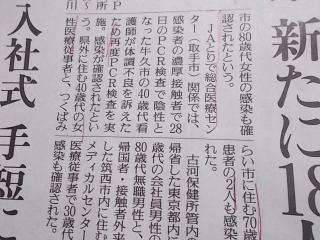 新たに18
市の80歳代女性の感染も確
認されたという。
JAとりで総合医療セン
ター(取手市)関係では、
感染者の濃厚接触者で28
日のPCR検査で陰性と
なった牛久市の40歳代看
護師が体調不良を訴えた
ため再度PCR検査を実
施。感染が確認されたとい
う。県外に住む40歳代の女
性医療従事者と、つくばみ
らい市に住む70歳
患者の2人も感
れた。
古河保健所管内の
帰省した東京都内に
歳代の会社員男性の
80歳代無職男性と、
帰国者・接触者外来
した筑西市内に住む
メディカルセンター
医療従事者で30歳代
感染も確認された。
P
所
川
入社式 手短に